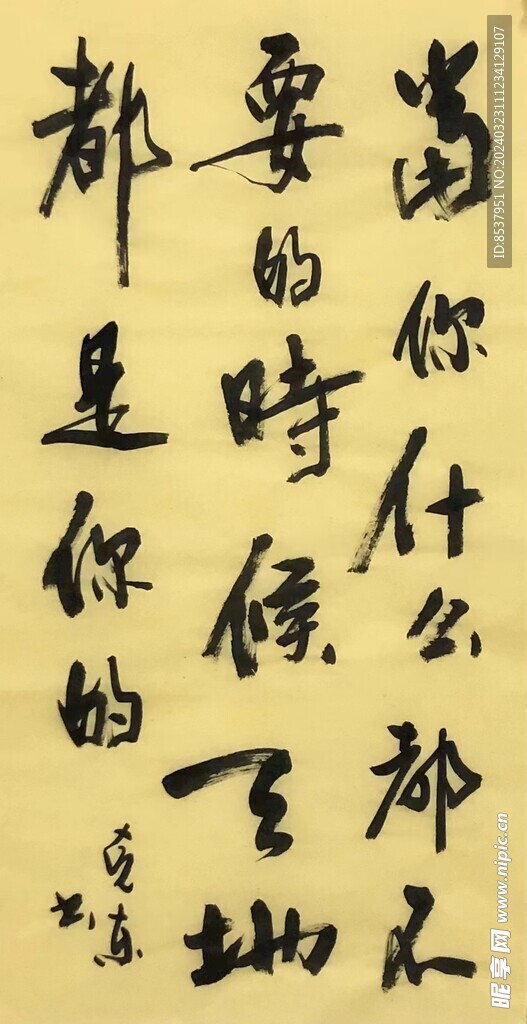 當你什么都不
要的時候天地
都是你的
克东
书
ID:8537951 NO:20240323111234129107
昵享网 www.nipic.cn